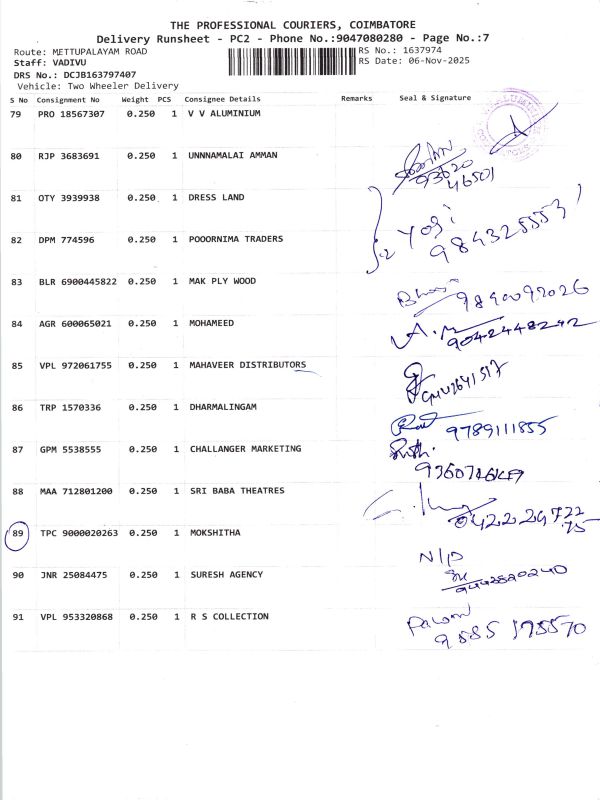 THE PROFESSIONAL COURIERS, COIMBATORE
Delivery Runsheet - PC2 - Phone No.:9047080280 - Page No.:7
Route: METTUPALAYAM ROAD RS No.: 1637974
Staff: VADIVU RS Date: 06-Nov-2025
DRS No.: DCJB163797407
Vehicle: Two Wheeler Delivery
S No Consignment No Weight PCS Consignee Details Remarks Seal & Signature
79 PRO 18567307 0.250 1 V V ALUMINIUM
80 RJP 3683691 0.250 1 UNNNAMALAI AMMAN
93620
46501
81 OTY 3939938 0.250 1 DRESS LAND
82 DPM 774596 0.250 1 POOORNIMA TRADERS
2 Yogi
9843255531
83 BLR 6900445822 0.250 1 MAK PLY WOOD
9840092026
84 AGR 600065021 0.250 1 MOHAMEED
9042448242
85 VPL 972061755 0.250 1 MAHAVEER DISTRIBUTORS
86 TRP 1570336 0.250 1 DHARMALINGAM
9789111855
87 GPM 5538555 0.250 1 CHALLANGER MARKETING
88 MAA 712801200 0.250 1 SRI BABA THEATRES
89 TPC 9000020263 0.250 1 MOKSHITHA
N/P
90 JNR 25084475 0.250 1 SURESH AGENCY
91 VPL 953320868 0.250 1 R S COLLECTION